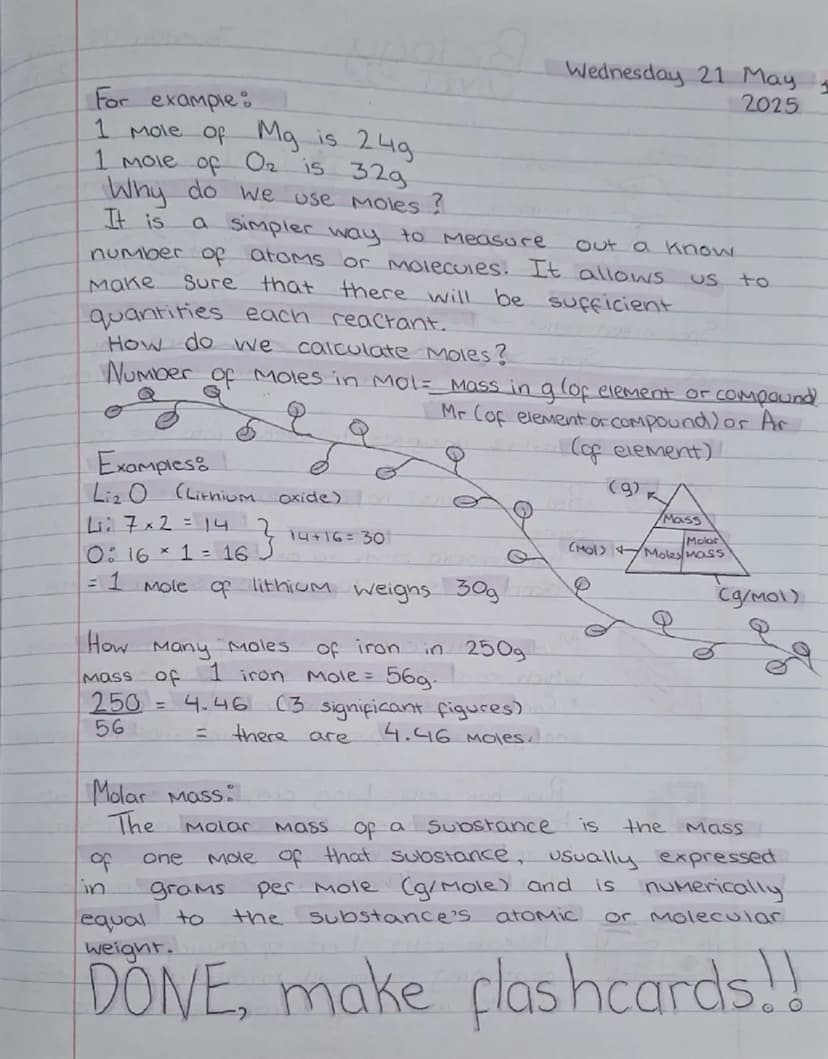 Wednesday 21 May
2025
For example:
1 Mole of Mg is 24g
1 Mole of O₂ is 32g
Why do we use Moles?
It is a simpler way to Measure out a know
number of atoms or Molecules. It allows us to
Make sure that there will be sufficient
quantities each reactant.
How do we calculate Moles?
Number of Moles in Mol = Mass in g (of element or compound
Mr (of element or compound) or Ar
(of element)
Examples:
Li₂O (Lithium oxide)
Li: 7 x 2 = 14
O: 16 x 1 = 16 } 14+16 = 30
= 1 Mole of lithium weighs 30g
(g)
Mass
(Mol) Moles Molar Mass
(g/Mol)
How Many Moles of iron in 250g
Mass of 1 iron Mole = 56g.
250 = 4.46 (3 significant figures)
56 = there are 4.46 Moles.
Molar Mass:
The Molar Mass of a substance is the Mass
of one Mole of that substance, usually expressed
in grams per Mole (g/Mole) and is numerically
equal to the substance's atomic or Molecular
weight.
DONE, make flashcards!!